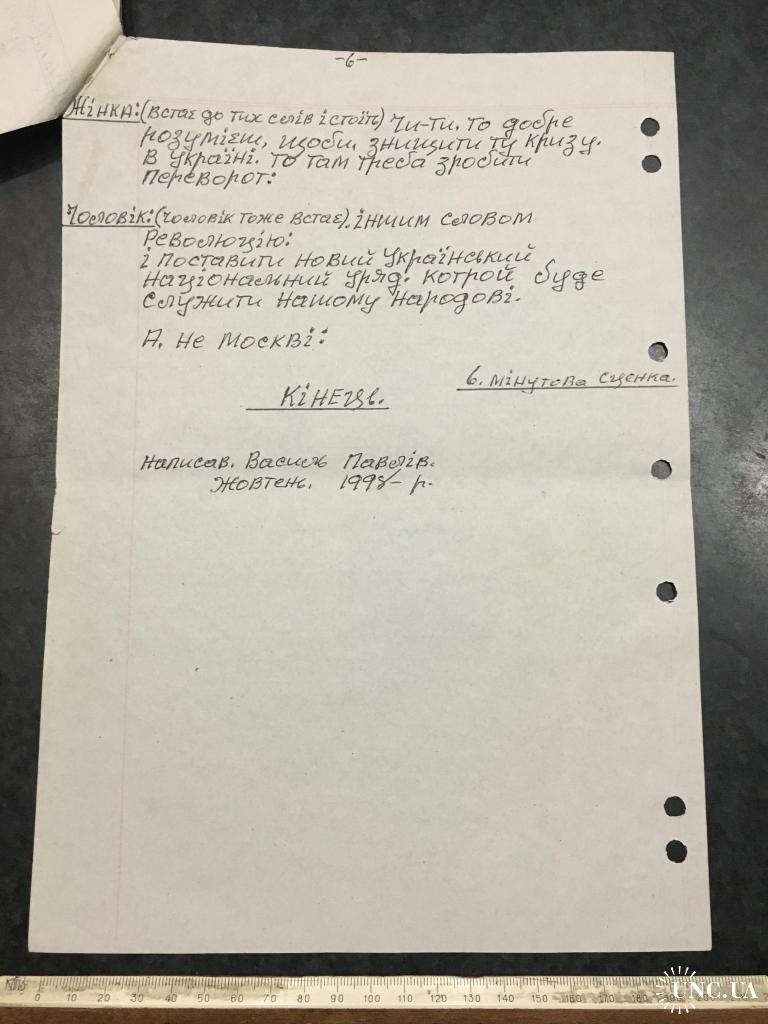 -6-
Жінка: (встає до тих слів і стоїть) Чи-ти. то добре
розумієш, щоби. знищити ту кризу.
в Україні. то там треба зробити
переворот:
Чоловік: (чоловік тоже встає). іншим словом
Революцію:
і поставити новий Український
Національний уряд. котрой буде
служити нашому народові.
А. не Москві:
6. мінутова сценка.
Кінець.
Написав. Василь Павлів.
Жовтень. 1998- р.
0 10 20 30 40 50 60 70 80 90 100 110 120 130 140 150 160 170 180
UNC.UA